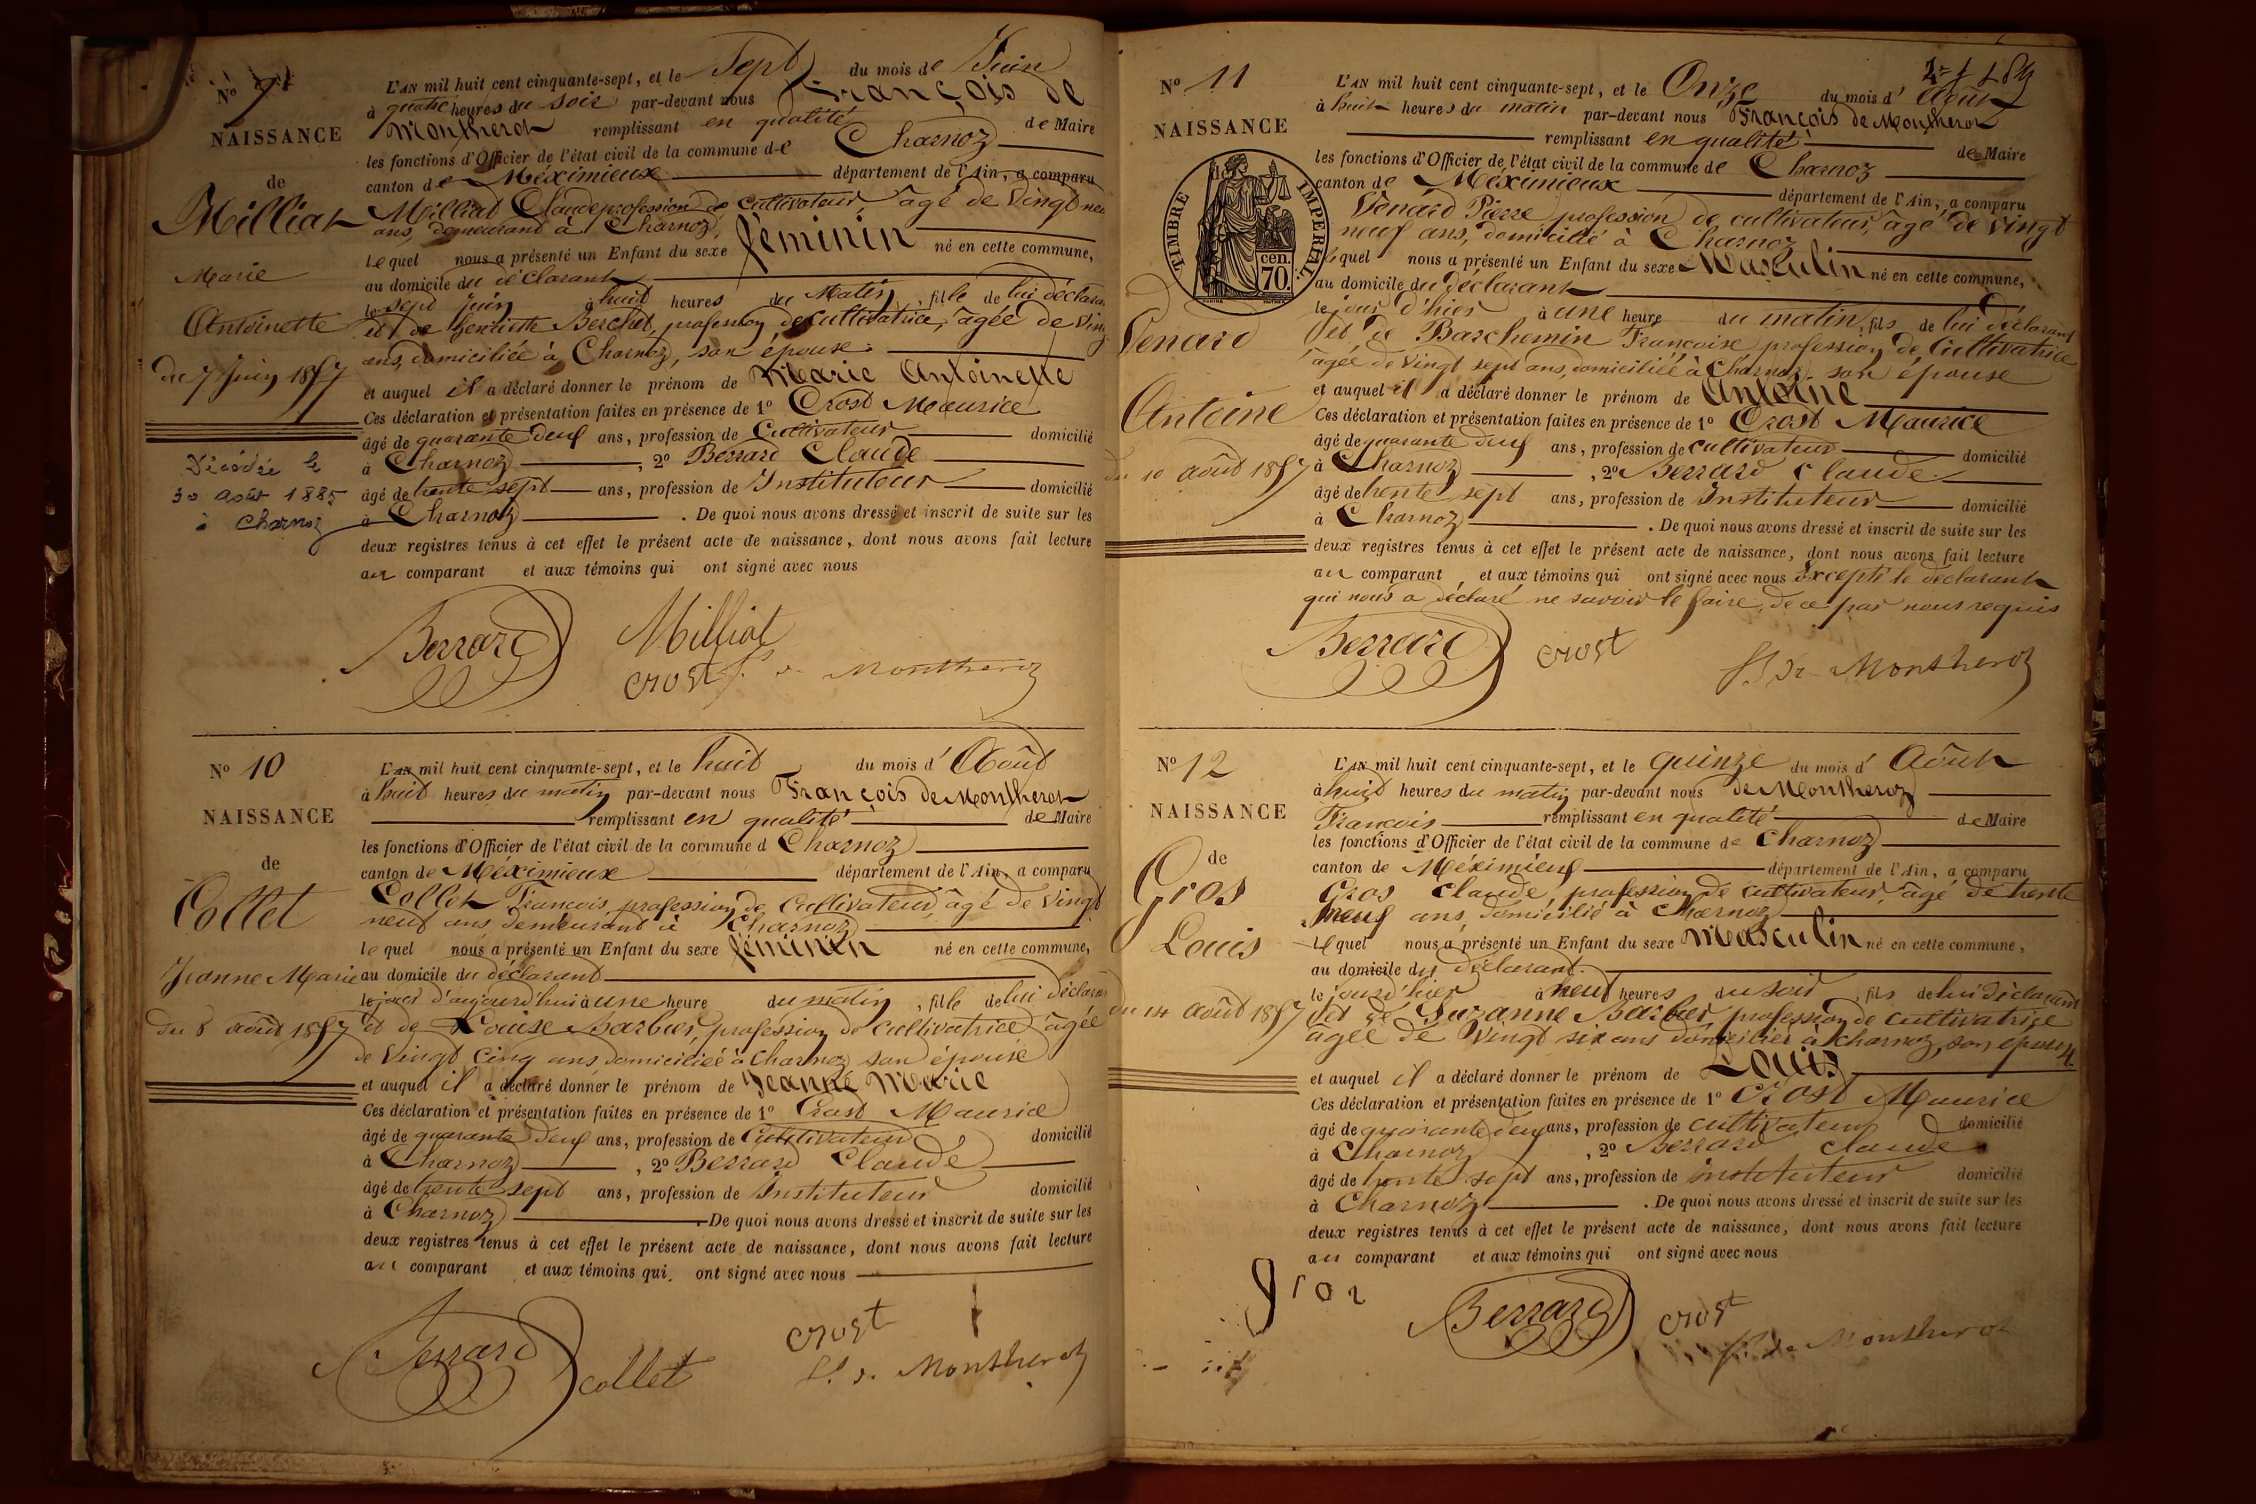 NAISSANCE
de
Milliat
Marie
Antoinette
du 7 Juin 1857
Décédée le
30 août 1885
à Charnoz
L'AN mil huit cent cinquante-sept, et le Sept du mois de Juin
à quatre heures du soir par-devant nous François de
Montherot remplissant en qualité de Maire
les fonctions d'Officier de l'état civil de la commune de Charnoz
canton de Méximieux département de l'Ain, a comparu
Milliat Claude profession de cultivateur âgé de vingt neuf
ans, demeurant à Charnoz,
lequel nous a présenté un Enfant du sexe féminin né en cette commune,
au domicile du déclarant
le sept Juin à huit heures du Matin, fille de lui déclarant
et de Henriette Berchet, profession de cultivatrice, âgée de vingt
ans, domiciliée à Charnoz, son épouse
et auquel il a déclaré donner le prénom de Marie Antoinette
Ces déclaration et présentation faites en présence de 1º Crost Maurice
âgé de quarante deux ans, profession de Cultivateur domicilié
à Charnoz, 2º Berrard Claude
âgé de trente sept ans, profession de Instituteur domicilié
à Charnoz. De quoi nous avons dressé et inscrit de suite sur les
deux registres tenus à cet effet le présent acte de naissance, dont nous avons fait lecture
au comparant et aux témoins qui ont signé avec nous
Berrard Milliat
crost f. de Montherot
Nº 10
NAISSANCE
de
Collet
Jeanne Marie
du 8 août 1857
L'AN mil huit cent cinquante-sept, et le huit du mois d'Août
à huit heures du matin par-devant nous François de Montherot
remplissant en qualité de Maire
les fonctions d'Officier de l'état civil de la commune d Charnoz
canton de Méximieux département de l'Ain, a comparu
Collet François profession de Cultivateur, âgé de vingt
neuf ans, demeurant à Charnoz
lequel nous a présenté un Enfant du sexe féminin né en cette commune,
au domicile du déclarant
le jour d'aujourd'hui à une heure du matin, fille de lui déclarant
et de Louise Barbier, profession de cultivatrice âgée
de vingt cinq ans domiciliée à Charnoz son épouse
et auquel il a déclaré donner le prénom de Jeanne Marie
Ces déclaration et présentation faites en présence de 1º Crost Maurice
âgé de quarante deux ans, profession de Cultivateur domicilié
à Charnoz, 2º Berrard Claude
âgé de trente sept ans, profession de Instituteur domicilié
à Charnoz. De quoi nous avons dressé et inscrit de suite sur les
deux registres tenus à cet effet le présent acte de naissance, dont nous avons fait lecture
au comparant et aux témoins qui ont signé avec nous
Berrard collet crost
f. de Montherot
Nº 11
NAISSANCE
TIMBRE IMPERIAL.
cen.
70.
Venard
Antoine
du 10 août 1857
L'AN mil huit cent cinquante-sept, et le Onze du mois d'Août
à huit heures du matin par-devant nous François de Montherot
remplissant en qualité de Maire
les fonctions d'Officier de l'état civil de la commune de Charnoz
canton de Méximieux département de l'Ain, a comparu
Venard Pierre profession de cultivateur, âgé de vingt
neuf ans, domicilié à Charnoz
lequel nous a présenté un Enfant du sexe Masculin né en cette commune,
au domicile du déclarant
le jour d'hier à une heure du matin, fils de lui déclarant
et de Barchemin Françoise profession de Cultivatrice
âgée de vingt sept ans, domiciliée à Charnoz son épouse
et auquel il a déclaré donner le prénom de Antoine
Ces déclaration et présentation faites en présence de 1º Crost Maurice
âgé de quarante deux ans, profession de cultivateur domicilié
à Charnoz, 2º Berrard Claude
âgé de trente sept ans, profession de Instituteur domicilié
à Charnoz. De quoi nous avons dressé et inscrit de suite sur les
deux registres tenus à cet effet le présent acte de naissance, dont nous avons fait lecture
au comparant et aux témoins qui ont signé avec nous excepté le déclarant
qui nous a déclaré ne savoir le faire, de ce par nous requis
Berrard crost f. de Montherot
Nº 12
NAISSANCE
de
Gros
Louis
du 14 août 1857
L'AN mil huit cent cinquante-sept, et le quinze du mois d'Août
à huit heures du matin par-devant nous de Montherot
François remplissant en qualité de Maire
les fonctions d'Officier de l'état civil de la commune de Charnoz
canton de Méximieux département de l'Ain, a comparu
Gros Claude, profession de cultivateur, âgé de trente
neuf ans, domicilié à Charnoz
lequel nous a présenté un Enfant du sexe Masculin né en cette commune,
au domicile du déclarant.
le jour d'hier à neuf heures du soir, fils de lui déclarant
et de Suzanne Barbier profession de cultivatrice
âgée de vingt six ans domiciliée à Charnoz, son épouse
et auquel il a déclaré donner le prénom de Louis
Ces déclaration et présentation faites en présence de 1º Crost Maurice
âgé de quarante deux ans, profession de cultivateur domicilié
à Charnoz, 2º Berrard Claude
âgé de trente sept ans, profession de instituteur domicilié
à Charnoz. De quoi nous avons dressé et inscrit de suite sur les
deux registres tenus à cet effet le présent acte de naissance, dont nous avons fait lecture
au comparant et aux témoins qui ont signé avec nous
gros Berrard crost
f. de Montherot